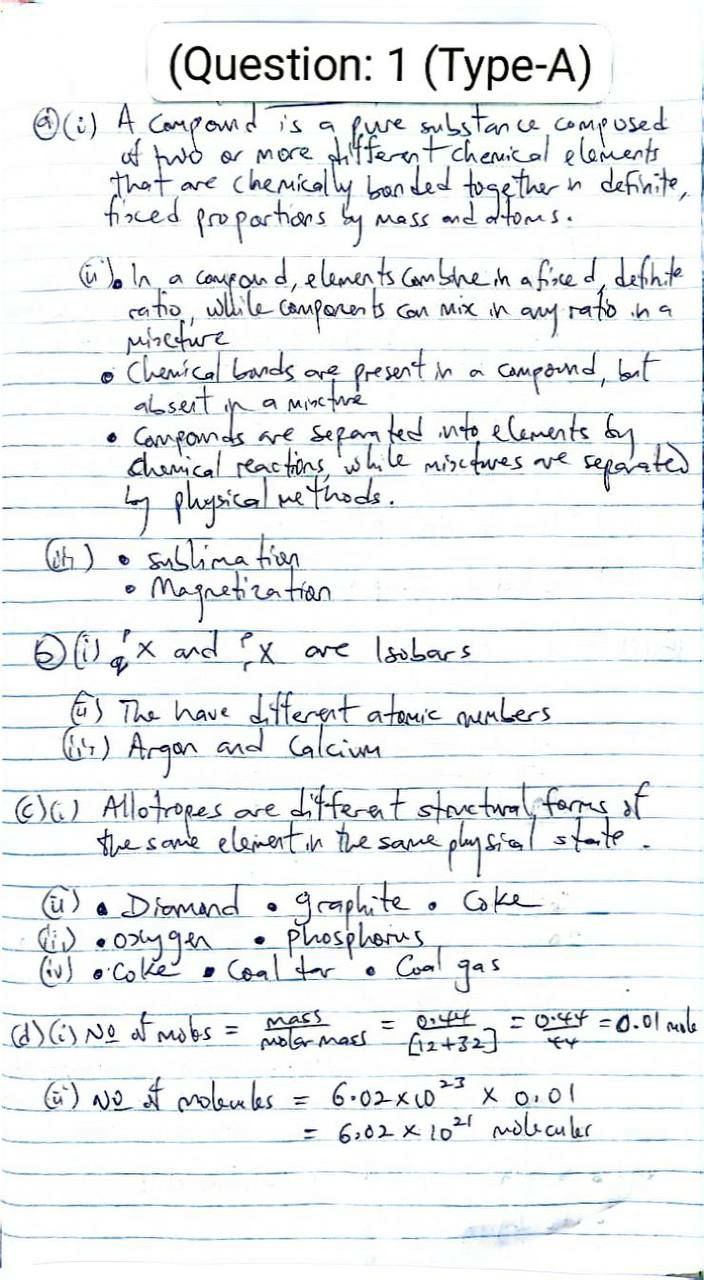 (Question: 1 (Type-A)
(a)(i) A compound is a pure substance composed
of two or more different chemical elements
that are chemically bonded together in definite,
fixed proportions by mass and atoms.
(ii) • In a compound, elements combine in a fixed, definite
ratio, while components can mix in any ratio in a
mixture
• Chemical bonds are present in a compound, but
absent in a mixture
• Compounds are separated into elements by
chemical reactions, while mixtures are separated
by physical methods.
(iii) • Sublimation
• Magnetization
(b)(i) ᵖqX and ᵖrX are Isobars
(ii) The have different atomic numbers
(iii) Argon and Calcium
(c)(i) Allotropes are different structural forms of
the same element in the same physical state.
(ii) • Diamond • graphite • Coke
(iii) • oxygen • phosphorus
(iv) • Coke • Coal tar • Coal gas
(d)(i) No of mols = mass / molar mass = 0.44 / [12+32] = 0.44 / 44 = 0.01 mole
(ii) No of molecules = 6.02 × 10²³ × 0.01
= 6.02 × 10²¹ molecules